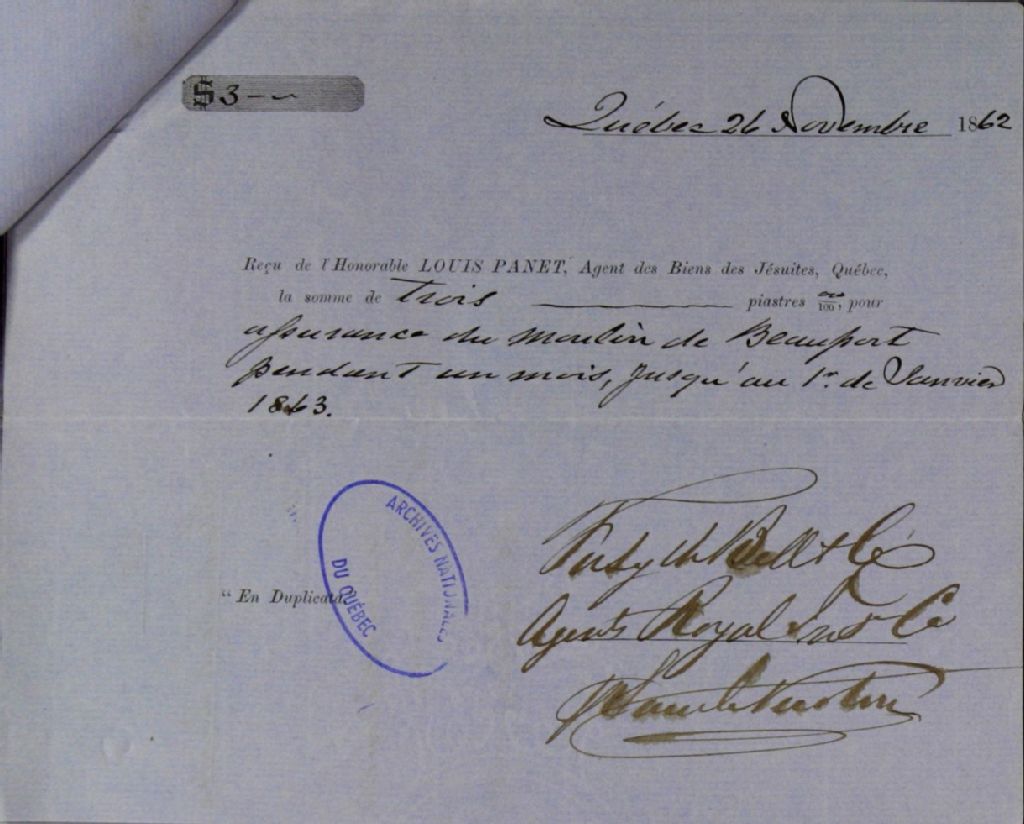 $ 3 —
Québec 26 Novembre 1862
Reçu de l'Honorable LOUIS PANET, Agent des Biens des Jésuites, Québec,
la somme de Trois piastres 00/100, pour
assurance du moulin de Beauport
pendant un mois, jusqu'au 1er de Janvier
1863.
Bell & Cé
Agents Royal Ince Co
"En Duplicata
ARCHIVES NATIONALES
DU QUÉBEC